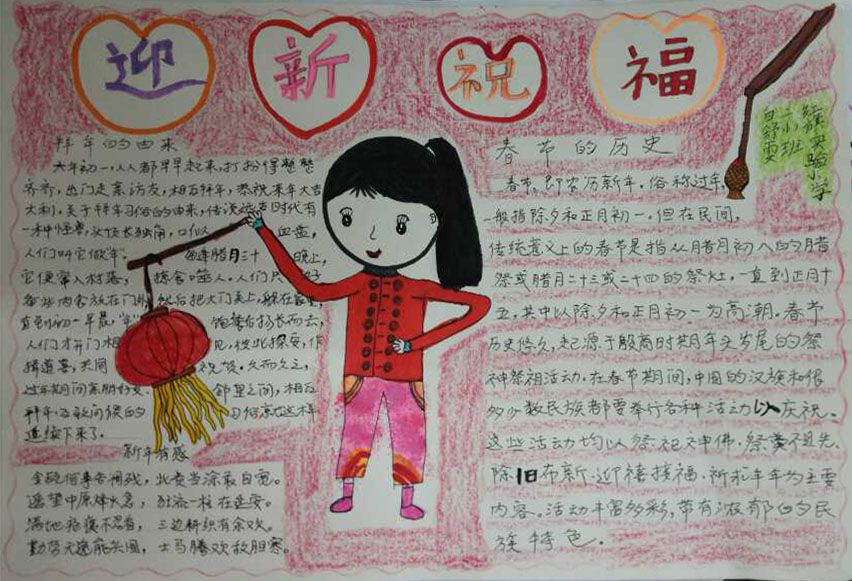 迎新祝福
拜年的由来
大年初一,人人都早早起来,打扮得整整
齐齐,出门走亲访友,相互拜年,恭祝来年大吉
大利。关于拜年习俗的由来,传说远古时代有
一种怪兽,头顶长独角,口似血盆,
人们叫它做"年"。每年腊月三十晚上,
它便窜入村落,噬人。人们只好
备些肉食放在门外,然后把大门关上,躲在家里,
直到初一早晨,"年"饱餐后扬长而去,
人们才开门相见,彼此拱手,作
揖道喜,共同祝贺。久而久之,
过年期间亲朋好友、邻里之间,相互
拜年、互致问候的习俗就这样
延续下来了。
新年有感
金瓯何事告凋残,此责当涂最自宽。
遥望中原烽火急,狂流一柱在延安。
满地疮痍不忍看,三边耕织有余欢。
勤劳天选能共国,士马腾欢敌胆寒。
春节的历史
春节,即农历新年。俗称过年,
一般指除夕和正月初一。但在民间,
传统意义上的春节是指从腊月初八的腊
祭或腊月二十三或二十四的祭灶,一直到正月十
五,其中以除夕和正月初一为高潮。春节
历史悠久,起源于殷商时期年头岁尾的祭
神祭祖活动。在春节期间,中国的汉族和很
多少数民族都要举行各种活动以庆祝。
这些活动均以祭祀神佛、祭奠祖先、
除旧布新、迎禧接福、祈求丰年为主要
内容。活动丰富多彩,带有浓郁的民
族特色。
实验小学
三小班